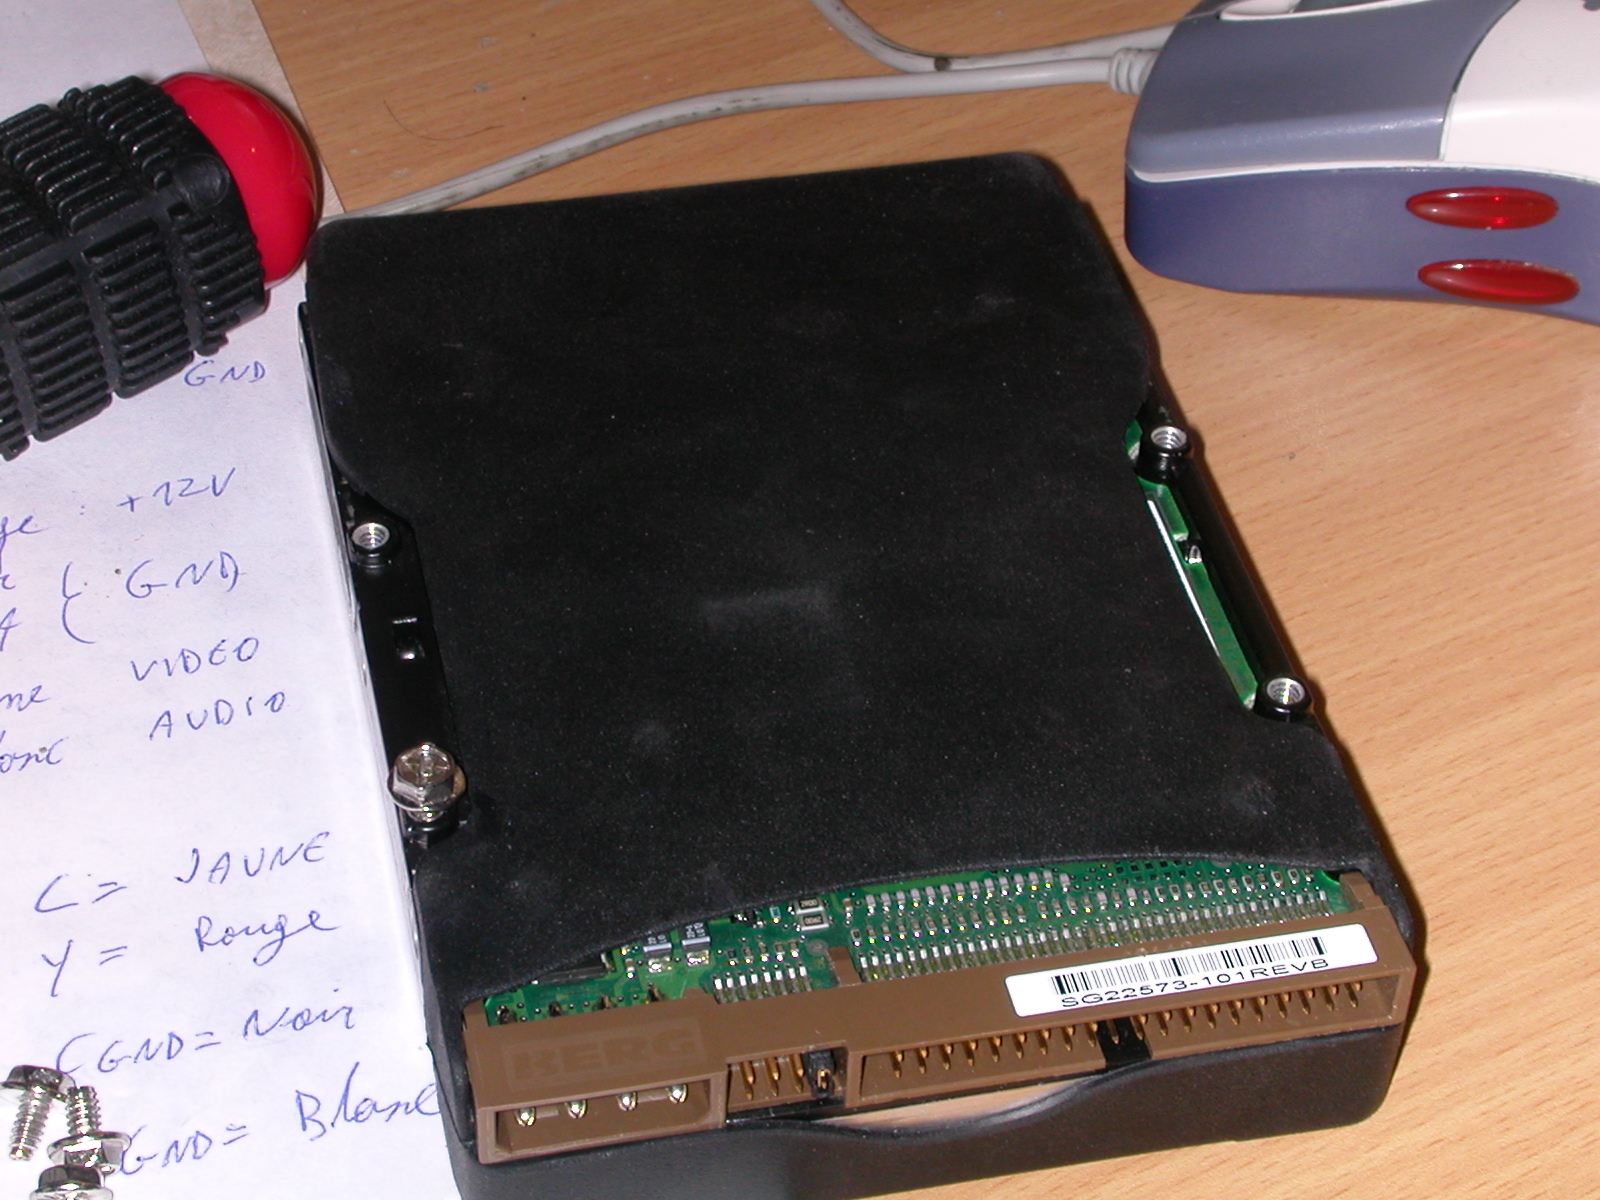 GND
: +12V
( GND
(
VIDEO
AUDIO
C = JAUNE
Y = Rouge
CGND = Noir
GND = Blanc
SG22573-101REVB
BERG